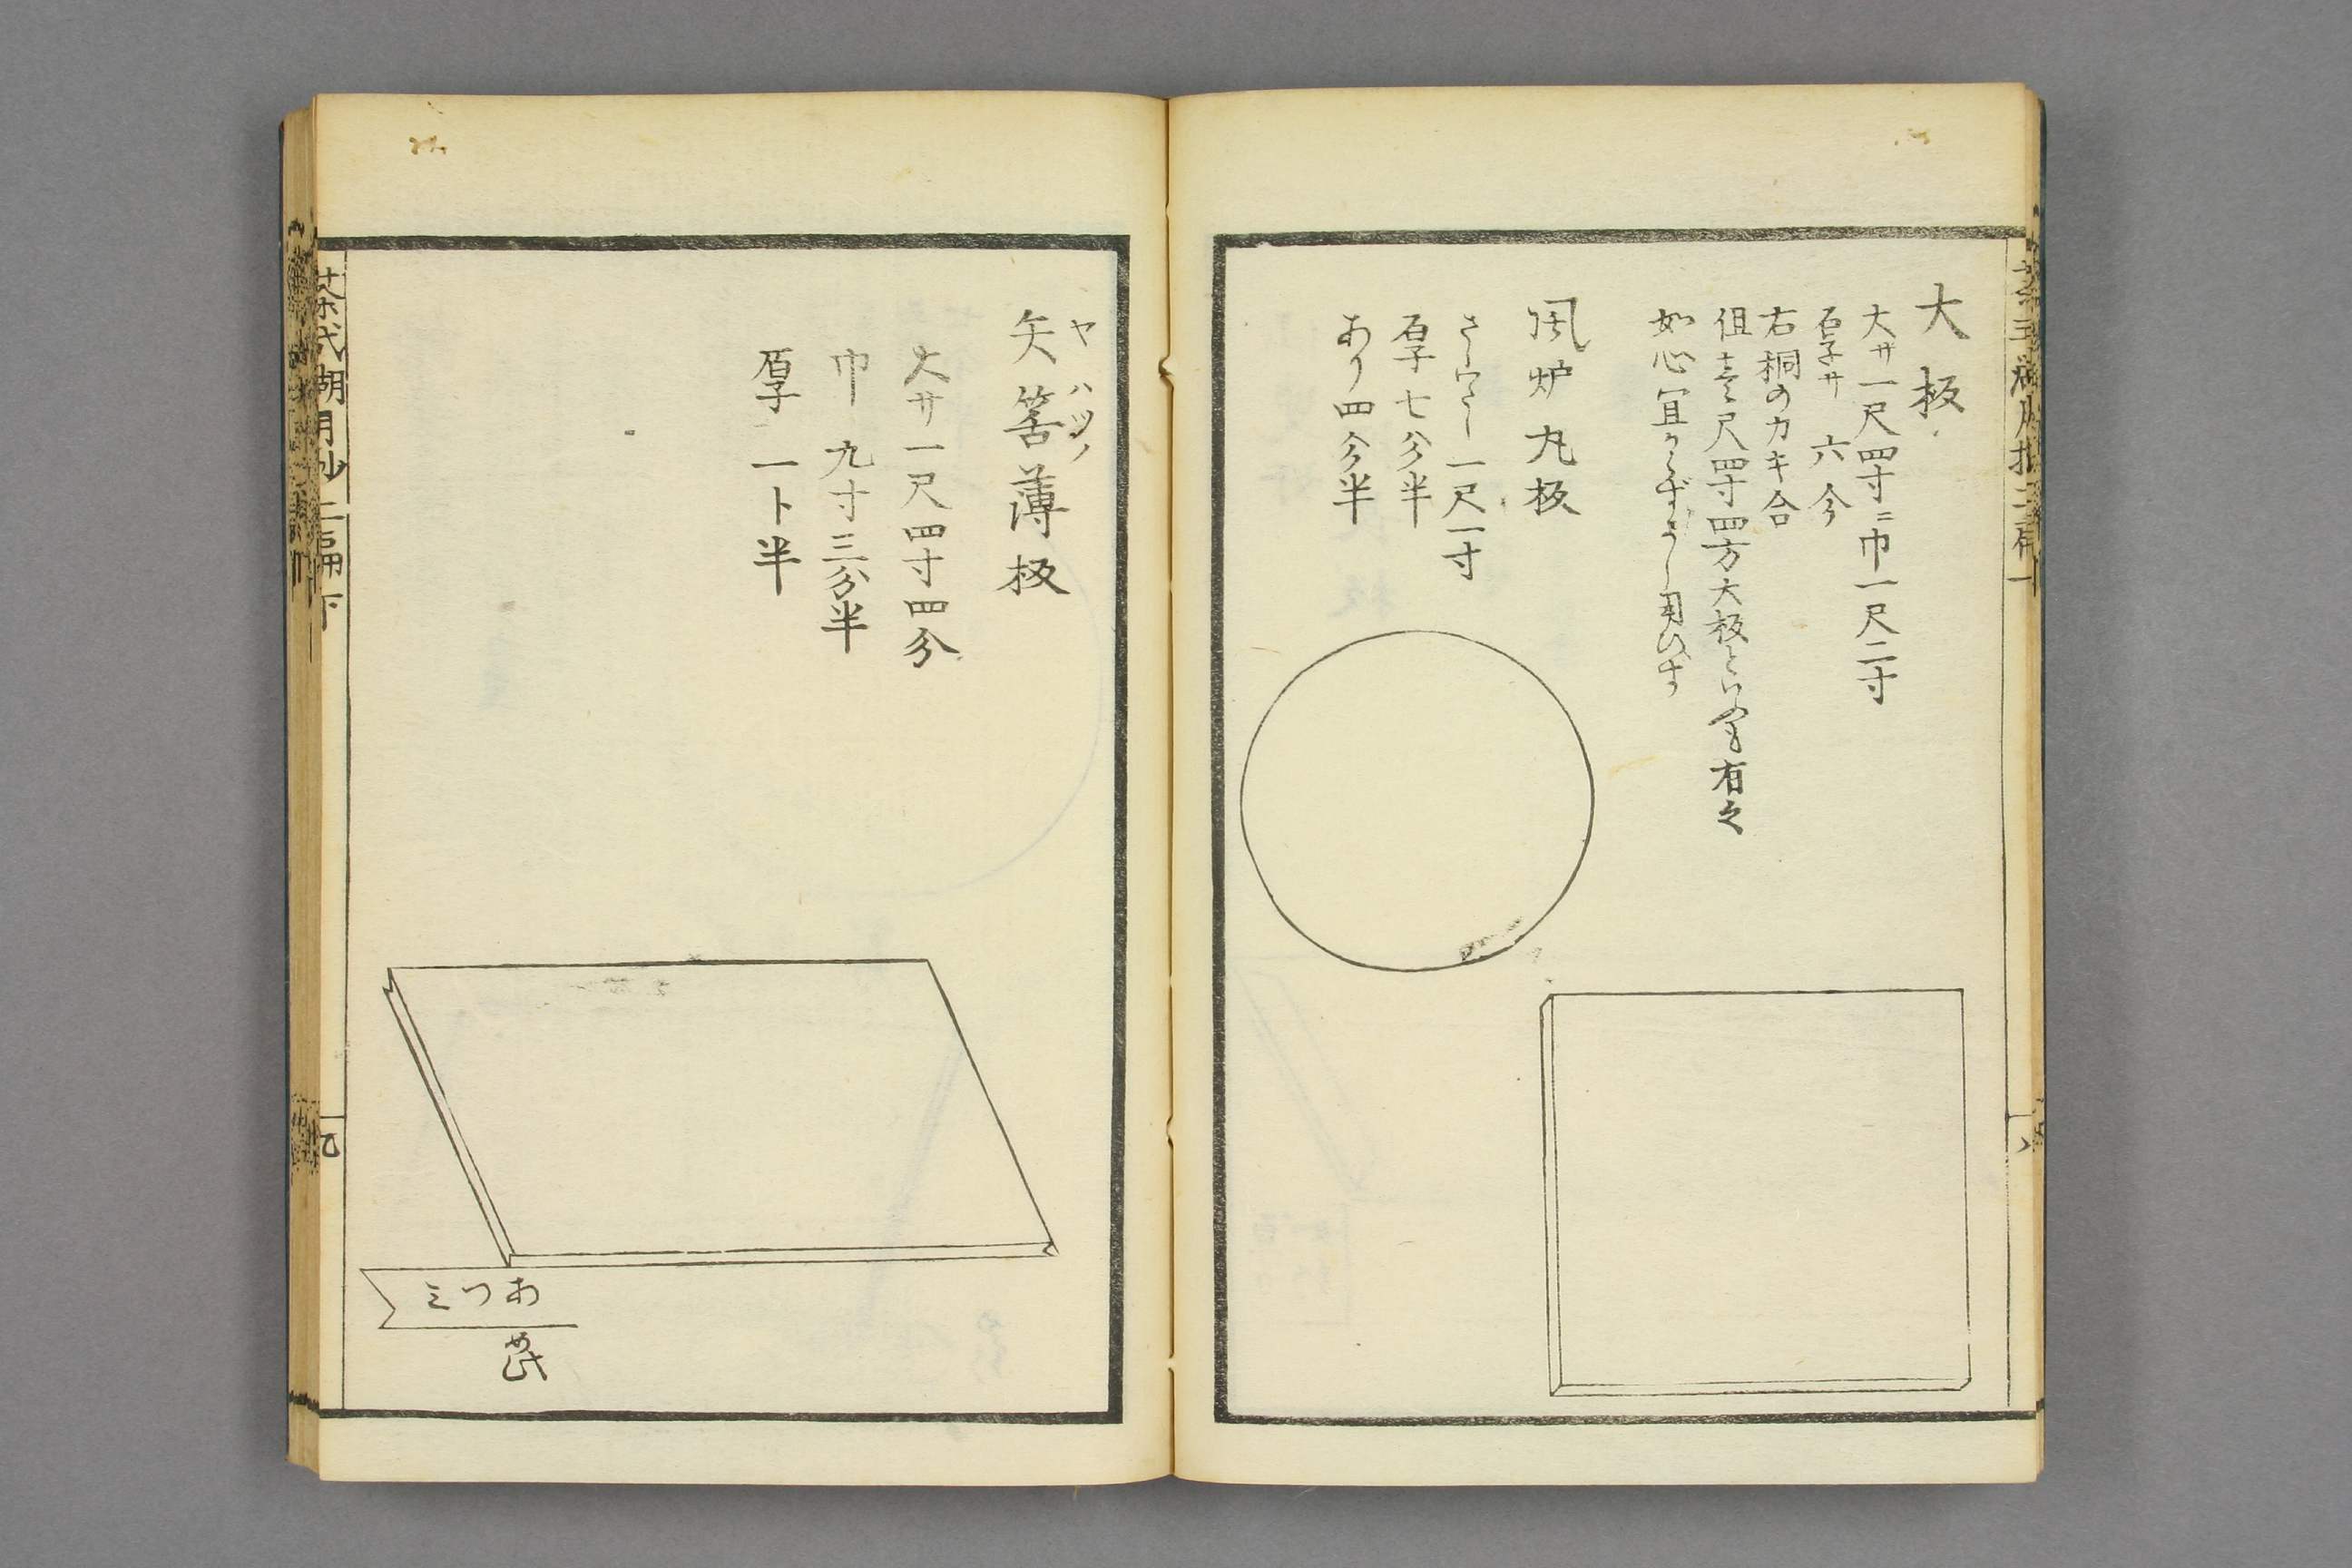 大板
大サ一尺四寸ニ巾一尺二寸
厚サ 六分
右桐のカキ合
但壱尺四寸四方大板といふも有之
如心宜からずよし用ひず
風炉丸板
さしわたし一尺一寸
厚七分半
あり四分半
矢筈薄板
ヤハツノ
大サ一尺四寸四分
巾 九寸三分半
厚 一ト半
あつミ
茶式湖月抄二編下
九